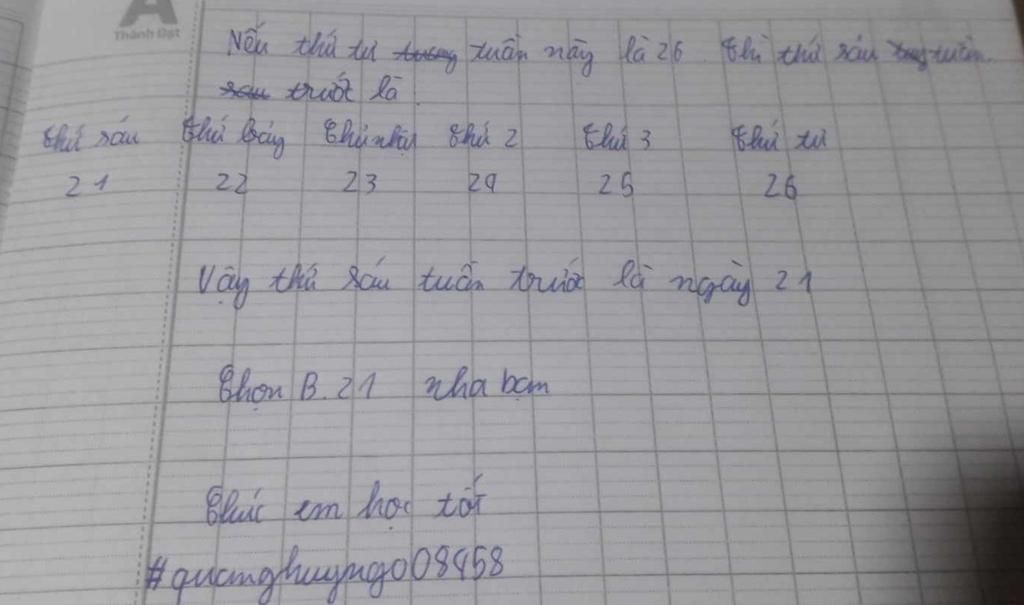 A
Thành Đạt
Nếu thứ tư tương tuần này là 26 thì thứ sáu tuần
sau trước là
thứ sáu thứ bảy chủ nhật thứ 2 thứ 3 thứ tư
21 22 23 24 25 26
Vậy thứ sáu tuần trước là ngày 21
Chọn B. 21 nha bạn
Chúc em học tốt
#quanghuyngo08458